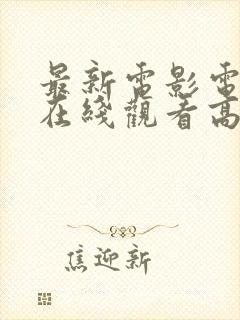 最新電影電
在綫觀看高
焦迎新